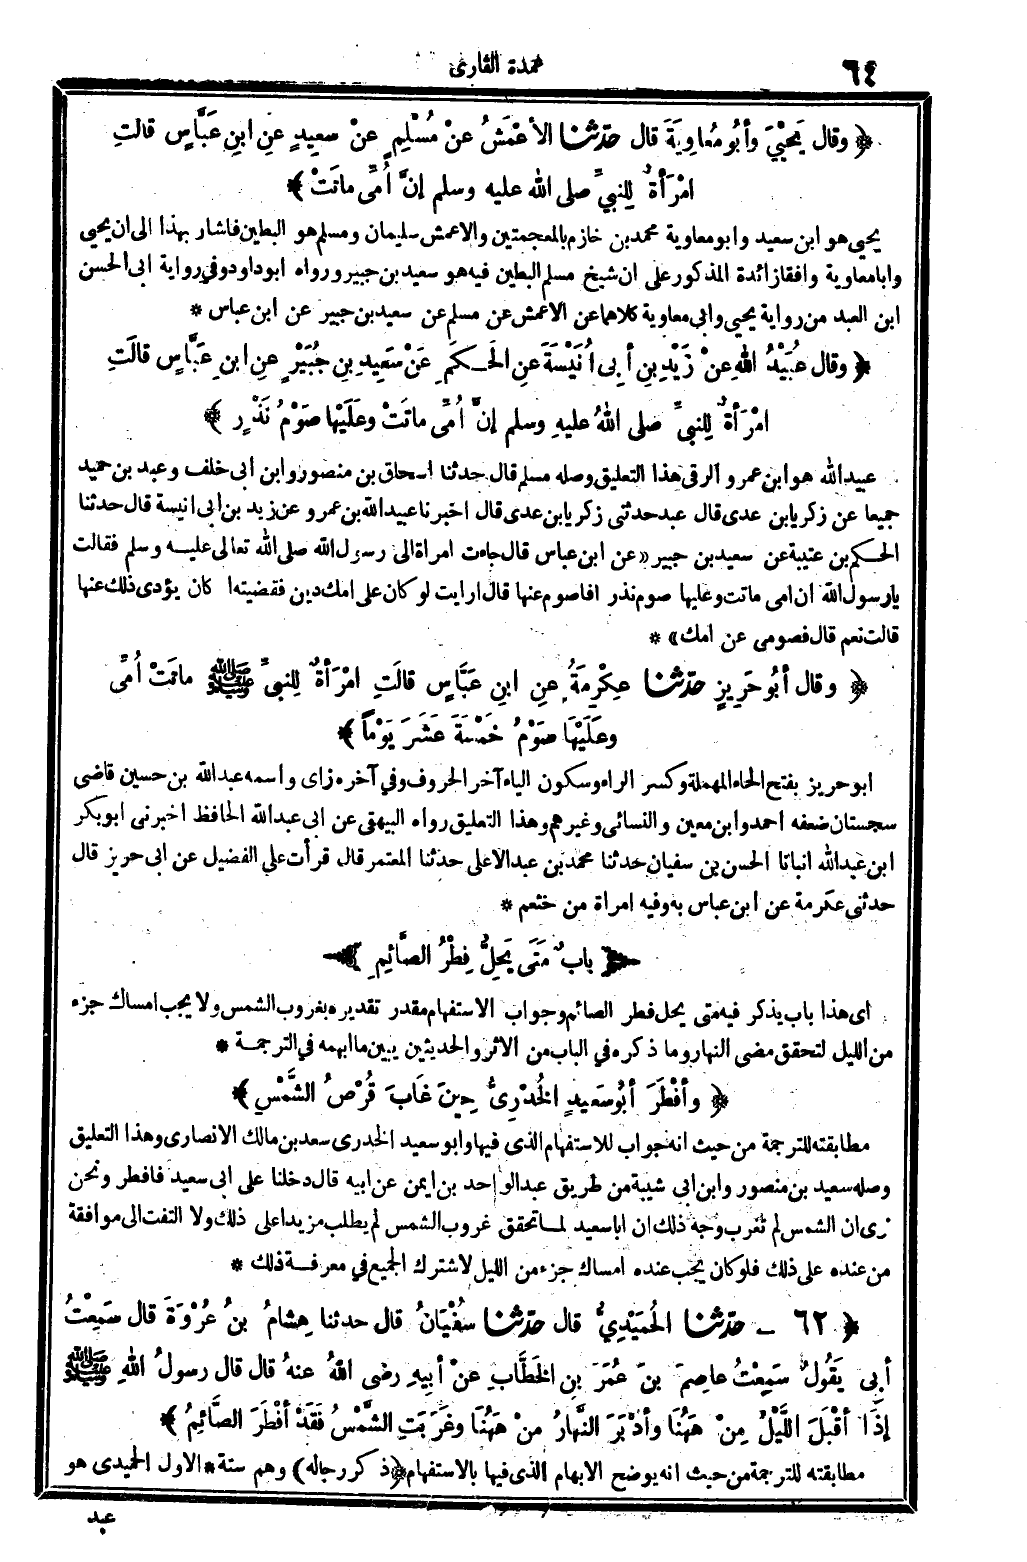 ٦٤
عمدة القارى
﴿ وقال يَحْيَيْ وأبُو مُعاوِيَةَ قال حدّثنا الأعْمَشُ عنْ مُسْلِمٍ عنْ سعِيدٍ عنِ ابنِ عَبَّاسٍ قالتِ
امْرَأةٌ لِلنبيِّ صلى الله عليه وسلم إنَّ أُمِّي ماتَتْ ﴾
يحيى هو ابن سعيد وابو معاوية محمد بن خازم بالمعجمتين والاعمش سليمان ومسلم هو البطين فاشار بهذا الى ان يحيى
وابا معاوية وافقا زائدة المذكور على ان شيخ مسلم البطين فيه هو سعيد بن جبير ورواه ابو داود وفي رواية ابى الحسن
ابن العبد من رواية يحيى وابى معاوية كلاهما عن الاعمش عن مسلم عن سعيد بن جبير عن ابن عباس *
﴿ وقال عُبَيْدُ اللهِ عنْ زَيْدِ بنِ أبِى اُنَيْسَةَ عنِ الحَـكَمِ عَنْ سَعِيدِ بنِ جُبَيْرٍ عنِ ابنِ عَبَّاسٍ قالَتِ
امْرَأةٌ لِلنبيِّ صلى اللهُ عليهِ وسلم إنَّ اُمِّى ماتَتْ وعَلَيْها صَوْمُ نَذْرٍ ﴾
عبيد الله هو ابن عمرو الرقى هذا التعليق وصله مسلم قال حدثنا اسحاق بن منصور وابن ابى خلف وعبد بن حميد
جميعا عن زكريا بن عدى قال عبد حدثنى زكريا بن عدى قال اخبرنا عبيد الله بن عمرو عن زيد بن ابى انيسة قال حدثنا
الحـكم بن عتيبة عن سعيد بن جبير «عن ابن عباس قال جاءت امراة الى رسول الله صلى الله تعالى عليـه وسلم فقالت
يا رسول الله ان امى ماتت وعليها صوم نذر افاصوم عنها قال ارايت لو كان على امك دين فقضيته اكان يؤدى ذلك عنها
قالت نعم قال فصومى عن امك» *
﴿ وقال أبُو حَرِيزٍ حدّثنا عِكْرِمَةُ عنِ ابنِ عَبَّاسٍ قالَتِ امْرَأةٌ لِلنبيِّ ﷺ ماتَتْ اُمِّى
وعَلَيْهَا صَوْمُ خَمْسَةَ عَشَرَ يَوْماً ﴾
ابو حريز بفتح الحاء المهملة وكسر الراء وسكون الياء آخر الحروف وفي آخره زاى واسمه عبد الله بن حسين قاضى
سجستان ضعفه احمد وابن معين والنسائى وغيرهم وهذا التعليق رواه البيهقى عن ابى عبد الله الحافظ اخبرنى ابو بكر
ابن عبد الله انبانا الحسن بن سفيان حدثنا محمد بن عبد الاعلى حدثنا المعتمر قال قرأت على الفضيل عن ابى حريز قال
حدثنى عكرمة عن ابن عباس به وفيه امراة من خثعم *
﴿ بابٌ مَتَى يَحِلُّ فِطْرُ الصَّائِمِ ﴾
اى هذا باب يذكر فيه متى يحل فطر الصائم وجواب الاستفهام مقدر تقديره بغروب الشمس ولا يجب امساك جزء
من الليل لتحقق مضى النهار وما ذكره في الباب من الاثر والحديثين يبين ما ابهمه في الترجمـة *
﴿ وأفْطَرَ أبُو سَعِيدٍ الخُدْرِيُّ حِينَ غَابَ قُرْصُ الشَّمْسِ ﴾
مطابقته للترجمة من حيث انه جواب للاستفهام الذى فيها وابو سعيد الخدرى سعد بن مالك الانصارى وهذا التعليق
وصله سعيد بن منصور وابن ابي شيبة من طريق عبد الواحد بن ايمن عن ابيه قال دخلنا على ابى سعيد فافطر ونحن
نرى ان الشمس لم تغرب وجه ذلك ان ابا سعيد لمـا تحقق غروب الشمس لم يطلب مزيدا على ذلك ولا التفت الى موافقة
من عنده على ذلك فلو كان يجب عنده امساك جزء من الليل لاشترك الجميع في معرفـة ذلك *
﴿ ٦٢ ــ حدّثنا الحُمَيْدِيُّ قال حدّثنا سُفْيَانُ قال حدثنا هِشامُ بنُ عُرْوَةَ قال سَمِعْتُ
أبِى يَقُولُ سَمِعْتُ عاصِمَ بنَ عُمَرَ بنِ الخَطَّابِ عنْ أبِيهِ رضى اللهُ عنهُ قال قال رسولُ اللهِ ﷺ
إذَا أقْبَلَ اللَّيْلُ مِنْ هَهُنَا وأدْبَرَ النَّهارُ منْ هَهُنَا وغَرَبَتِ الشَّمْسُ فَقَدْ أفْطَرَ الصَّائِمُ ﴾
مطابقته للترجمة من حيث انه يوضح الابهام الذى فيها بالاستفهام ﴿ذكر رجاله﴾ وهم ستة * الاول الحميدى هو
عبد